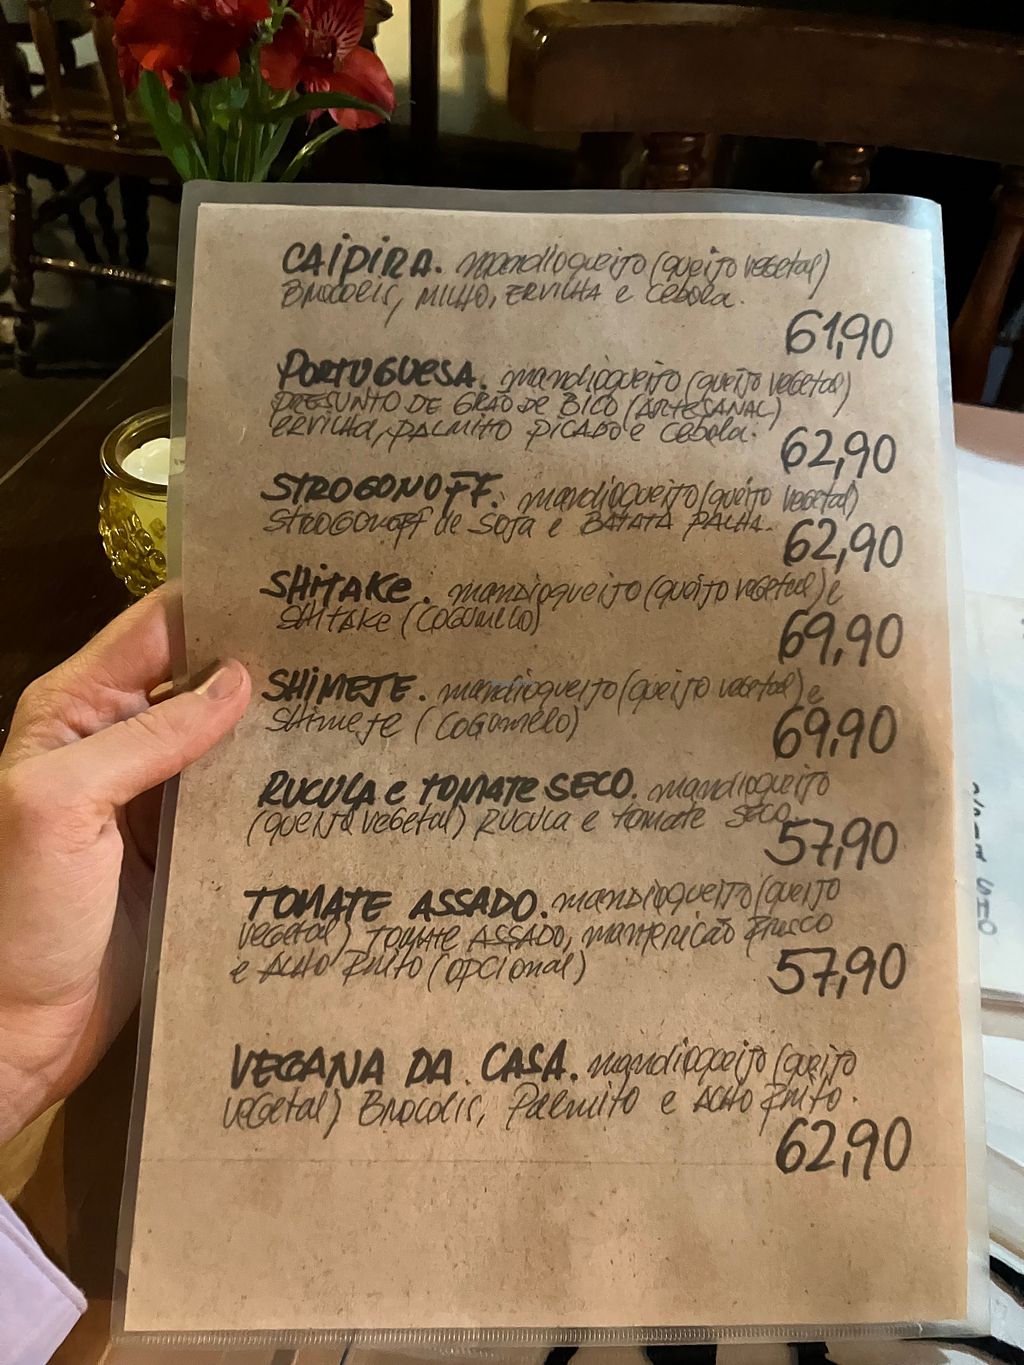 CAIPIRA. mandioqueijo (queijo vegetal)
BRÓCOLIS, MILHO, ERVILHA e cebola.
61,90
PORTUGUESA. mandioqueijo (queijo vegetal)
PRESUNTO DE GRÃO DE BICO (ARTESANAL)
ERVILHA, PALMITO PICADO e cebola.
62,90
STROGONOFF. mandioqueijo (queijo vegetal)
STROGONOFF de Soja e BATATA PALHA.
62,90
SHITAKE. mandioqueijo (queijo vegetal) e
SHITAKE (COGUMELO)
69,90
SHIMEJE. mandioqueijo (queijo vegetal) e
Shimeje (COGUMELO)
69,90
RUCULA e TOMATE SECO. mandioqueijo
(queijo vegetal) RUCULA e tomate seco.
57,90
TOMATE ASSADO. mandioqueijo (queijo
vegetal) TOMATE ASSADO, manjericão FRESCO
e ALHO FRITO (opcional)
57,90
VEGANA DA CASA. mandioqueijo (queijo
vegetal) BRÓCOLIS, Palmito e ALHO FRITO.
62,90